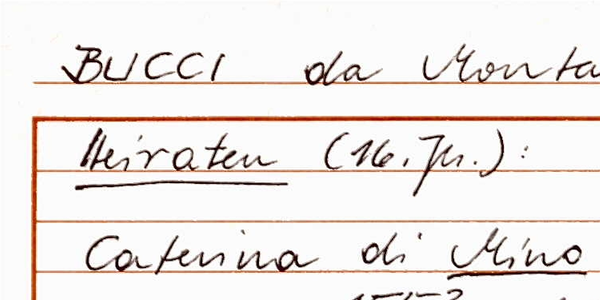 BUCCI da Monta
Heiraten (16. Jh.):
Caterina di Mino